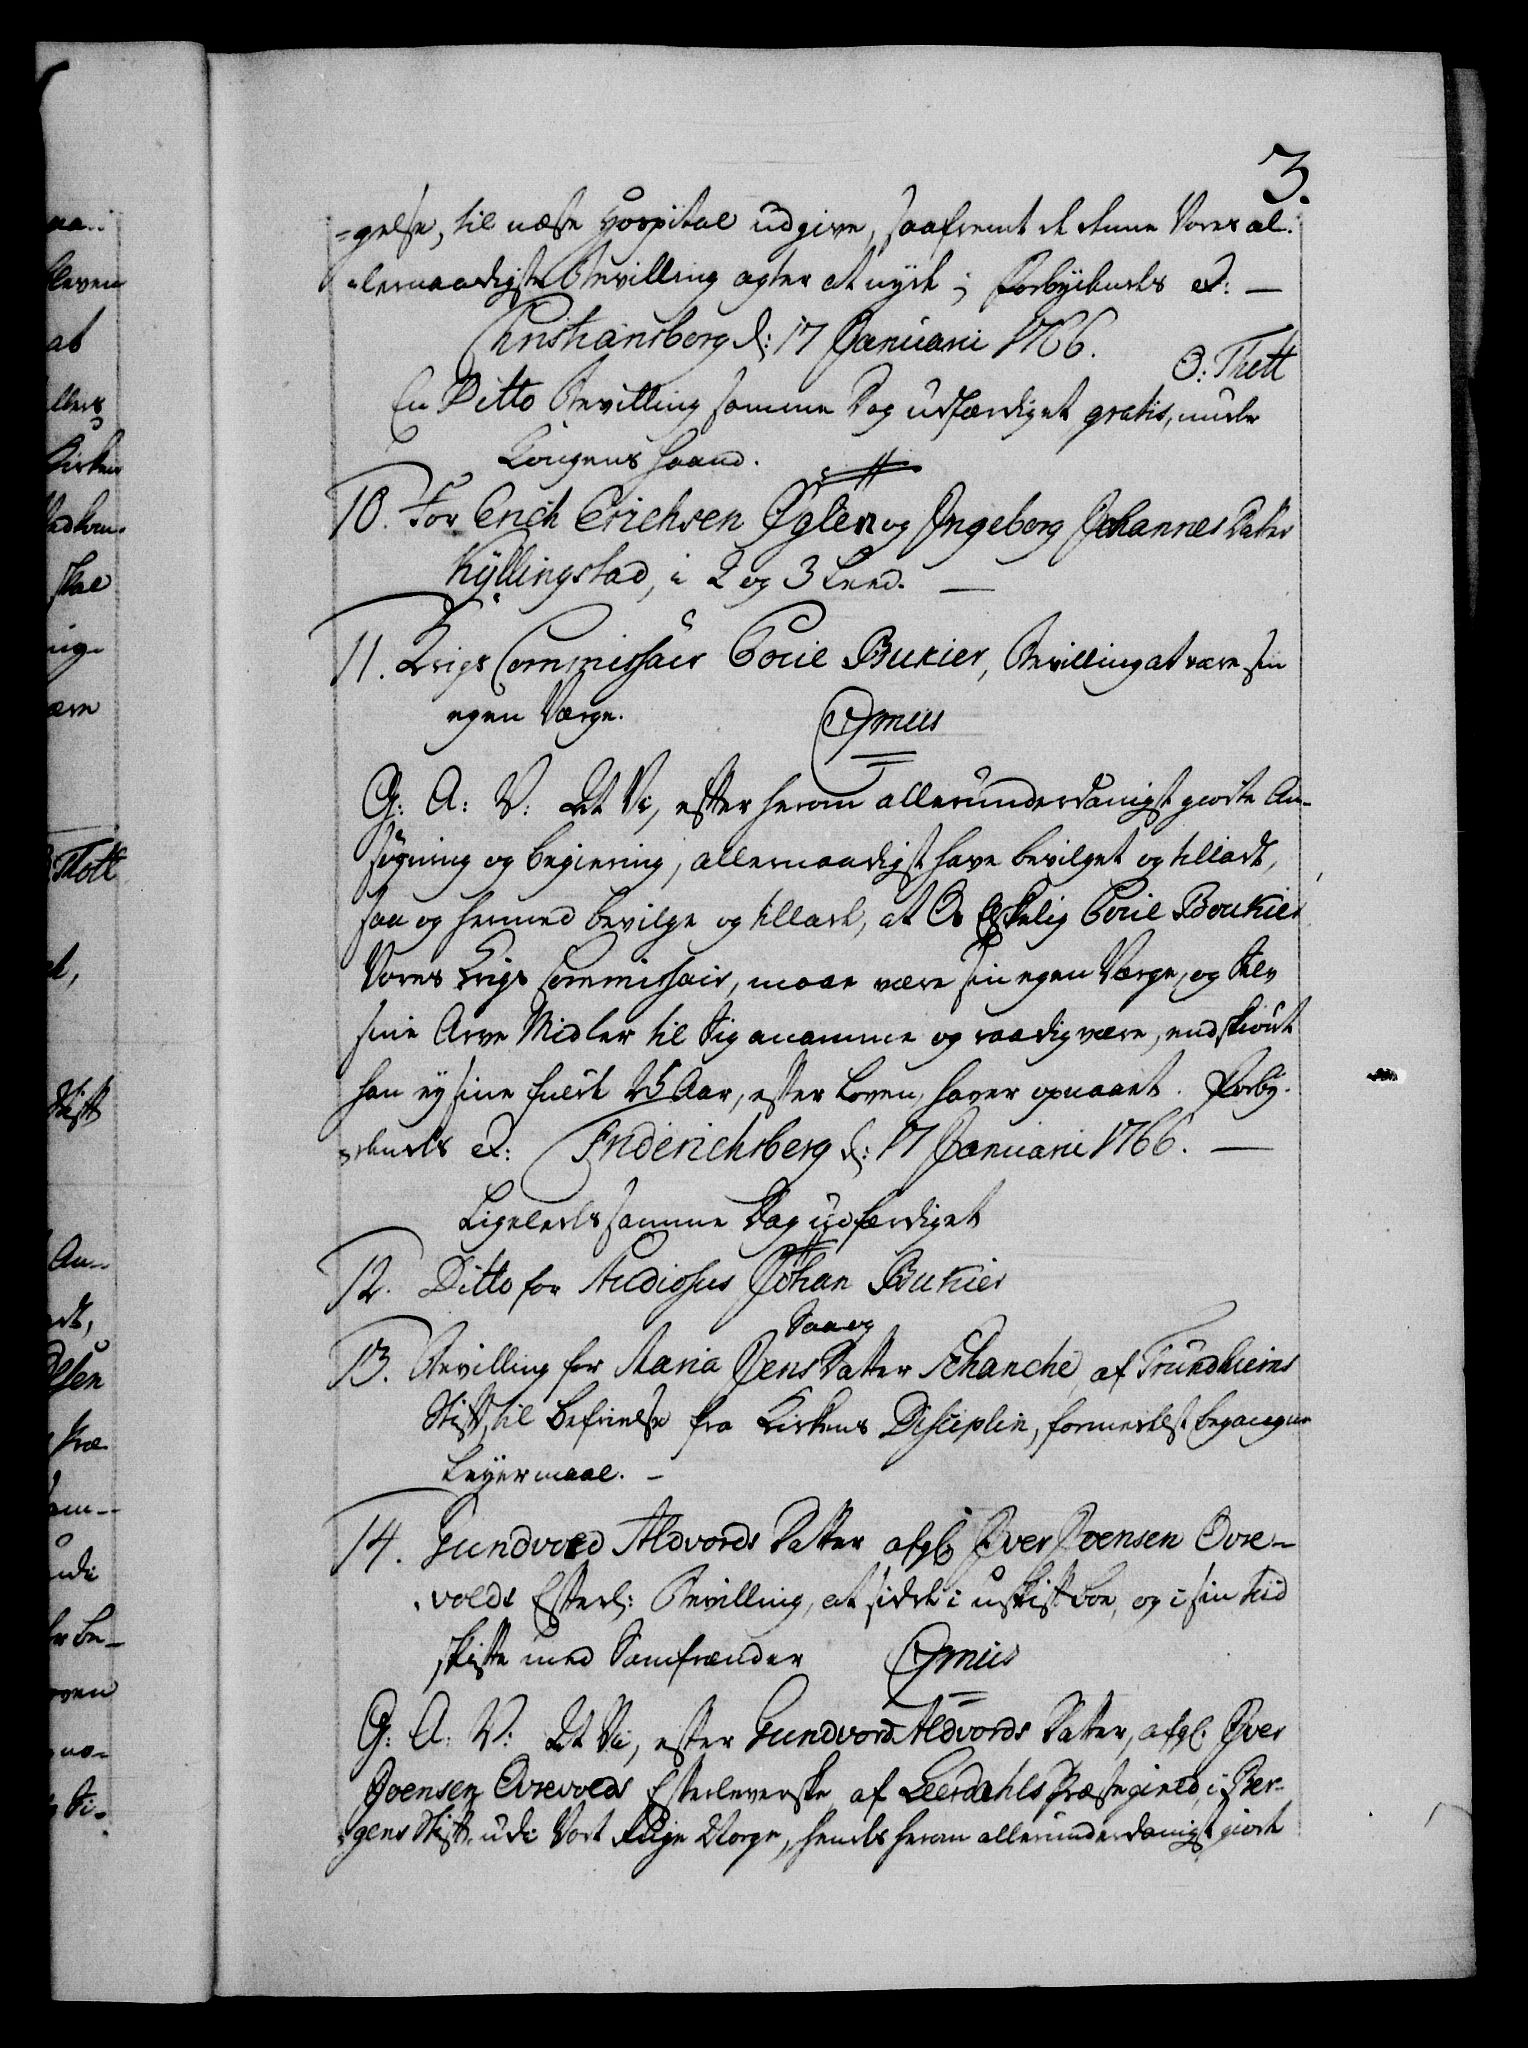 3.
=gelse, til næste Hospital udgive, saafremt de denne Vores al=
=lernaadigste Bevilling agter at nyde; Forbydendes &: —
Christiansborg d: 17 Januarii 1766.
O: Thott
En Ditto Bevilling samme Dag udfærdiget gratis, under
Kongens Haand.
10. For Erich Erichsen Øglen og Ingeborg Johannes Datter
Kÿllingstad, i 2 og 3 Leed. —
11. Krigs Commissair Boukier, Bevilling at være sin
egen Værge. Gmüs
G: A: V: At Vi, efter herom allerunderdanigst giorte An-
søgning og Begiering, allernaadigst have bevilget og tilladt,
saa og hermed bevilge og tillade, at Os Elskelig Boukier
Vores Krigs Commissair, maae være sin egen Værge, og Selv
sine Arve Midler til Sig anamme og raadig være, endskiønt
han ey sine fulde 25 Aar, efter Loven, haver opnaaet. Forby-
=dendes &: Friderichsberg d: 17 Januarii 1766. —
Ligeledes samme Dag udfærdiget
12. Ditto for Studiosus Johan Bukier
Saa og
13. Bevilling for Maria Jens Datter Schanche, af Trundhiems
Stift, til Befrielse fra Kirkens Disciplin, formedelst begangne
Leÿermaal. —
14. Gundvord Aldvords Datter afgl. Iver Joensen Ovre-
volds Efterl: Bevilling, at sidde i uskift Boe, og i sin Tiid
skifte med Samfrænder Gmüs
G: A: V: At Vi, efter Gundvord Aldvords Datter, afgl. Iver
Joensen Ovrevolds Efterleverske af Leerdahls Præstegield, i Ber-
=gens Stift udi Vort Rige Norge, hendes herom allerunderdanigst giorde